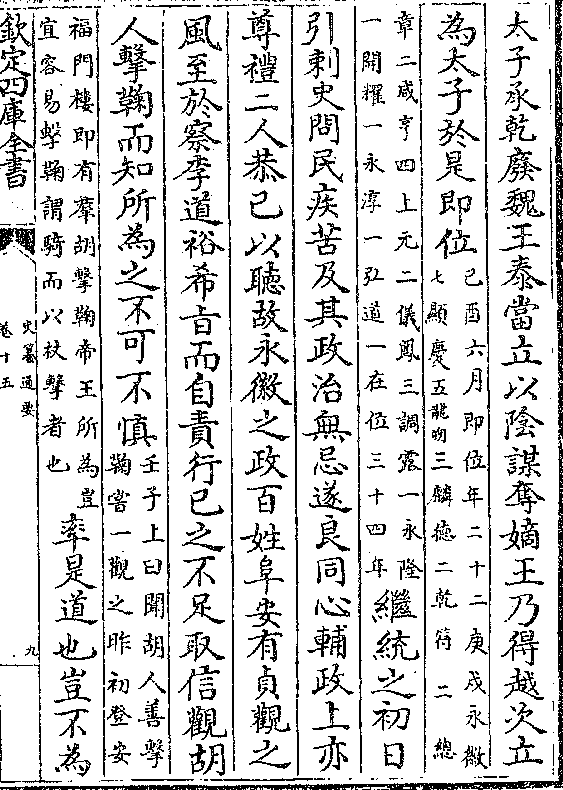 太子承乾廢魏王泰當立以陰謀奪嫡王乃得越次立
為太子於是即位
己酉六月即位年二十二庚戌永徽
七顯慶五龍朔三麟德二乾符二總
章二咸亨四上元二儀鳳三調露一永隆
一開耀一永淳一弘道一在位三十四年
繼統之初日
引刺史問民疾苦及其政治無忌遂良同心輔政上亦
尊禮二人恭己以聽故永徽之政百姓阜安有貞觀之
風至於察李道裕希旨而自責行己之不足取信觀胡
人擊鞠而知所為之不可不慎
壬子上曰聞胡人善擊
鞠嘗一觀之昨初登安
福門樓即有羣胡擊鞠帝王所為豈
宜容易擊鞠謂騎而以杖擊者也
率是道也豈不為
欽定四庫全書
史纂通要
卷十五
九